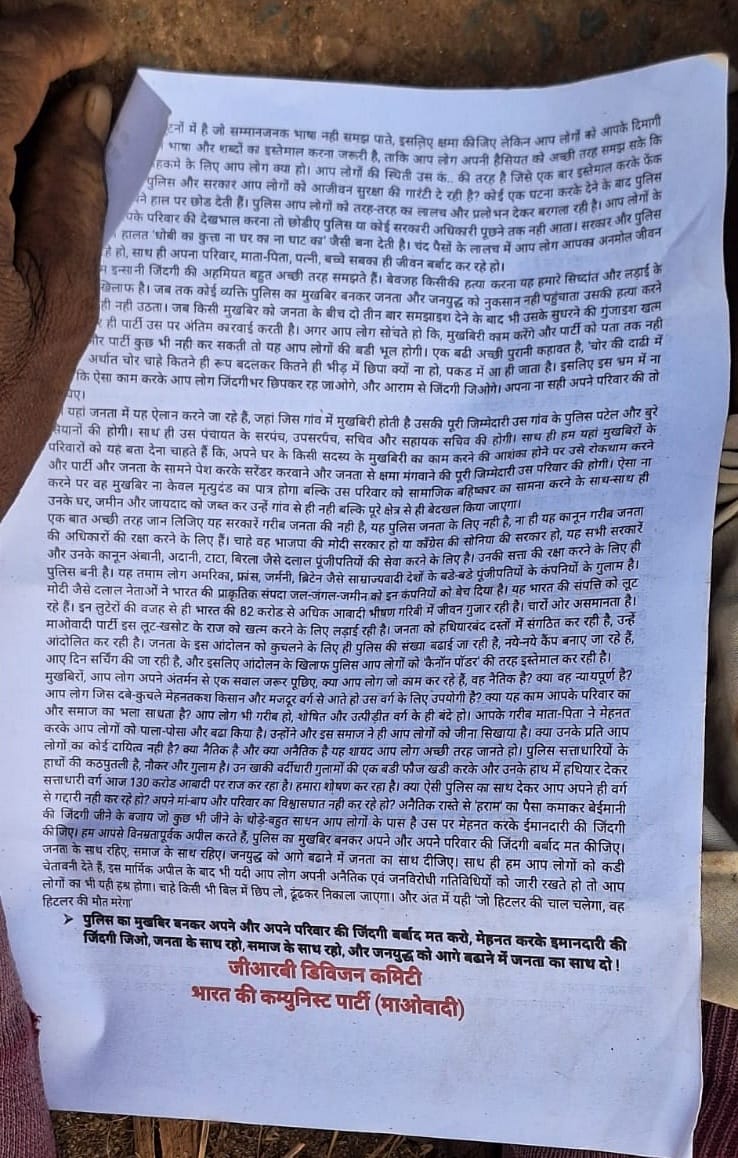 में है जो सम्मानजनक भाषा नही समझ पाते, इसलिए क्षमा कीजिए लेकिन आप लोगों को आपके दिमागी
भाषा और शब्दों का इस्तेमाल करना जरूरी है, ताकि आप लोग अपनी हैसियत को अच्छी तरह समझ सके कि
के लिए आप लोग क्या हो। आप लोगों की स्थिती उस कं.. की तरह है जिसे एक बार इस्तेमाल करके फेंक
पुलिस और सरकार आप लोगों को आजीवन सुरक्षा की गारंटी दे रही है? कोई एक घटना करके देने के बाद पुलिस
हाल पर छोड देती हैं। पुलिस आप लोगों को तरह-तरह का लालच और प्रलोभन देकर बरगला रही है। आप लोगों के
के परिवार की देखभाल करना तो छोडीए पुलिस या कोई सरकारी अधिकारी पूछने तक नही आता। सरकार और पुलिस
हालत 'धोबी का कुत्ता ना घर का ना घाट का' जैसी बना देती है। चंद पैसों के लालच में आप लोग आपका अनमोल जीवन
हो, साथ ही अपना परिवार, माता-पिता, पत्नी, बच्चे सबका ही जीवन बर्बाद कर रहे हो।
इन्सानी जिंदगी की अहमियत बहुत अच्छी तरह समझते हैं। बेवजह किसीकी हत्या करना यह हमारे सिध्दांत और लड़ाई के
खिलाफ है। जब तक कोई व्यक्ति पुलिस का मुखबिर बनकर जनता और जनयुद्ध को नुकसान नही पहुंचाता उसकी हत्या करने
ही नही उठता। जब किसी मुखबिर को जनता के बीच दो तीन बार समझाइश देने के बाद भी उसके सुधरने की गुंजाइश खत्म
ही पार्टी उस पर अंतिम कारवाई करती है। अगर आप लोग सोंचते हो कि, मुखबिरी काम करेंगे और पार्टी को पता तक नही
और पार्टी कुछ भी नही कर सकती तो यह आप लोगों की बडी भूल होगी। एक बढी अच्छी पुरानी कहावत है, 'चोर की दाढी में
अर्थात चोर चाहे कितने ही रूप बदलकर कितने ही भीड़ में छिपा क्यों ना हो, पकड में आ ही जाता है। इसलिए इस भ्रम में ना
कि ऐसा काम करके आप लोग जिंदगीभर छिपकर रह जाओगे, और आराम से जिंदगी जिओगे। अपना ना सही अपने परिवार की तो
यहां जनता में यह ऐलान करने जा रहे हैं, जहां जिस गांव में मुखबिरी होती है उसकी पूरी जिम्मेदारी उस गांव के पुलिस पटेल और बुरे
की होगी। साथ ही उस पंचायत के सरपंच, उपसरपंच, सचिव और सहायक सचिव की होगी। साथ ही हम यहां मुखबिरों के
परिवारों को यह बता देना चाहते हैं कि, अपने घर के किसी सदस्य के मुखबिरी का काम करने की आशंका होने पर उसे रोकथाम करने
और पार्टी और जनता के सामने पेश करके सरेंडर करवाने और जनता से क्षमा मंगवाने की पूरी जिम्मेदारी उस परिवार की होगी। ऐसा ना
करने पर वह मुखबिर ना केवल मृत्युदंड का पात्र होगा बल्कि उस परिवार को सामाजिक बहिष्कार का सामना करने के साथ-साथ ही
उनके घर, जमीन और जायदाद को जब्त कर उन्हें गांव से ही नही बल्कि पूरे क्षेत्र से ही बेदखल किया जाएगा।
एक बात अच्छी तरह जान लिजिए यह सरकारें गरीब जनता की नही है, यह पुलिस जनता के लिए नही है, ना ही यह कानून गरीब जनता
की अधिकारों की रक्षा करने के लिए हैं। चाहे वह भाजपा की मोदी सरकार हो या काँग्रेस की सोनिया की सरकार हो, यह सभी सरकारें
और उनके कानून अंबानी, अदानी, टाटा, बिरला जैसे दलाल पूंजीपतियों की सेवा करने के लिए है। उनकी सत्ता की रक्षा करने के लिए ही
पुलिस बनी है। यह तमाम लोग अमरिका, फ्रांस, जर्मनी, ब्रिटेन जैसे साम्राज्यवादी देशों के बडे-बडे पूंजीपतियों के कंपनियों के गुलाम है।
मोदी जैसे दलाल नेताओं ने भारत की प्राकृतिक संपदा जल-जंगल-जमीन को इन कंपनियों को बेच दिया है। यह भारत की संपत्ति को लूट
रहे हैं। इन लुटेरों की वजह से ही भारत की 82 करोड से अधिक आबादी भीषण गरिबी में जीवन गुजार रही है। चारों ओर असमानता है।
माओवादी पार्टी इस लूट-खसोट के राज को खत्म करने के लिए लड़ाई रही है। जनता को हथियारबंद दस्तों में संगठित कर रही है, उन्हें
आंदोलित कर रही है। जनता के इस आंदोलन को कुचलने के लिए ही पुलिस की संख्या बढाई जा रही है, नये-नये कैंप बनाए जा रहे हैं,
आए दिन सर्चिंग की जा रही है, और इसलिए आंदोलन के खिलाफ पुलिस आप लोगों को 'कैनॉन पॉडर' की तरह इस्तेमाल कर रही है।
मुखबिरों, आप लोग अपने अंतर्मन से एक सवाल जरूर पूछिए, क्या आप लोग जो काम कर रहे हैं, वह नैतिक है? क्या वह न्यायपूर्ण है?
आप लोग जिस दबे-कुचले मेहनतकश किसान और मजदूर वर्ग से आते हो उस वर्ग के लिए उपयोगी है? क्या यह काम आपके परिवार का
और समाज का भला साधता है? आप लोग भी गरीब हो, शोषित और उत्पीड़ीत वर्ग के ही बंदे हो। आपके गरीब माता-पिता ने मेहनत
करके आप लोगों को पाला-पोसा और बढा किया है। उन्होंने और इस समाज ने ही आप लोगों को जीना सिखाया है। क्या उनके प्रति आप
लोगों का कोई दायित्व नही है? क्या नैतिक है और क्या अनैतिक है यह शायद आप लोग अच्छी तरह जानते हो। पुलिस सत्ताधारियों के
हाथों की कठपुतली है, नौकर और गुलाम है। उन खाकी वर्दीधारी गुलामों की एक बडी फौज खडी करके और उनके हाथ में हथियार देकर
सत्ताधारी वर्ग आज 130 करोड आबादी पर राज कर रहा है। हमारा शोषण कर रहा है। क्या ऐसी पुलिस का साथ देकर आप अपने ही वर्ग
से गद्दारी नही कर रहे हो? अपने मां-बाप और परिवार का विश्वासघात नही कर रहे हो? अनैतिक रास्ते से 'हराम' का पैसा कमाकर बेईमानी
की जिंदगी जीने के बजाय जो कुछ भी जीने के थोडे-बहुत साधन आप लोगों के पास है उस पर मेहनत करके ईमानदारी की जिंदगी
कीजिए। हम आपसे विनम्रतापूर्वक अपील करते हैं, पुलिस का मुखबिर बनकर अपने और अपने परिवार की जिंदगी बर्बाद मत कीजिए।
जनता के साथ रहिए, समाज के साथ रहिए। जनयुद्ध को आगे बढाने में जनता का साथ दीजिए। साथ ही हम आप लोगों को कडी
चेतावनी देते हैं, इस मार्मिक अपील के बाद भी यदी आप लोग अपनी अनैतिक एवं जनविरोधी गतिविधियों को जारी रखते हो तो आप
लोगों का भी यही हश्र होगा। चाहे किसी भी बिल में छिप लो, ढूंढकर निकाला जाएगा। और अंत में यही 'जो हिटलर की चाल चलेगा, वह
हिटलर की मौत मरेगा'
➢ पुलिस का मुखबिर बनकर अपने और अपने परिवार की जिंदगी बर्बाद मत करो, मेहनत करके इमानदारी की
जिंदगी जिओ, जनता के साथ रहो, समाज के साथ रहो, और जनयुद्ध को आगे बढाने में जनता का साथ दो !
जीआरबी डिविजन कमिटी
भारत की कम्युनिस्ट पार्टी (माओवादी)